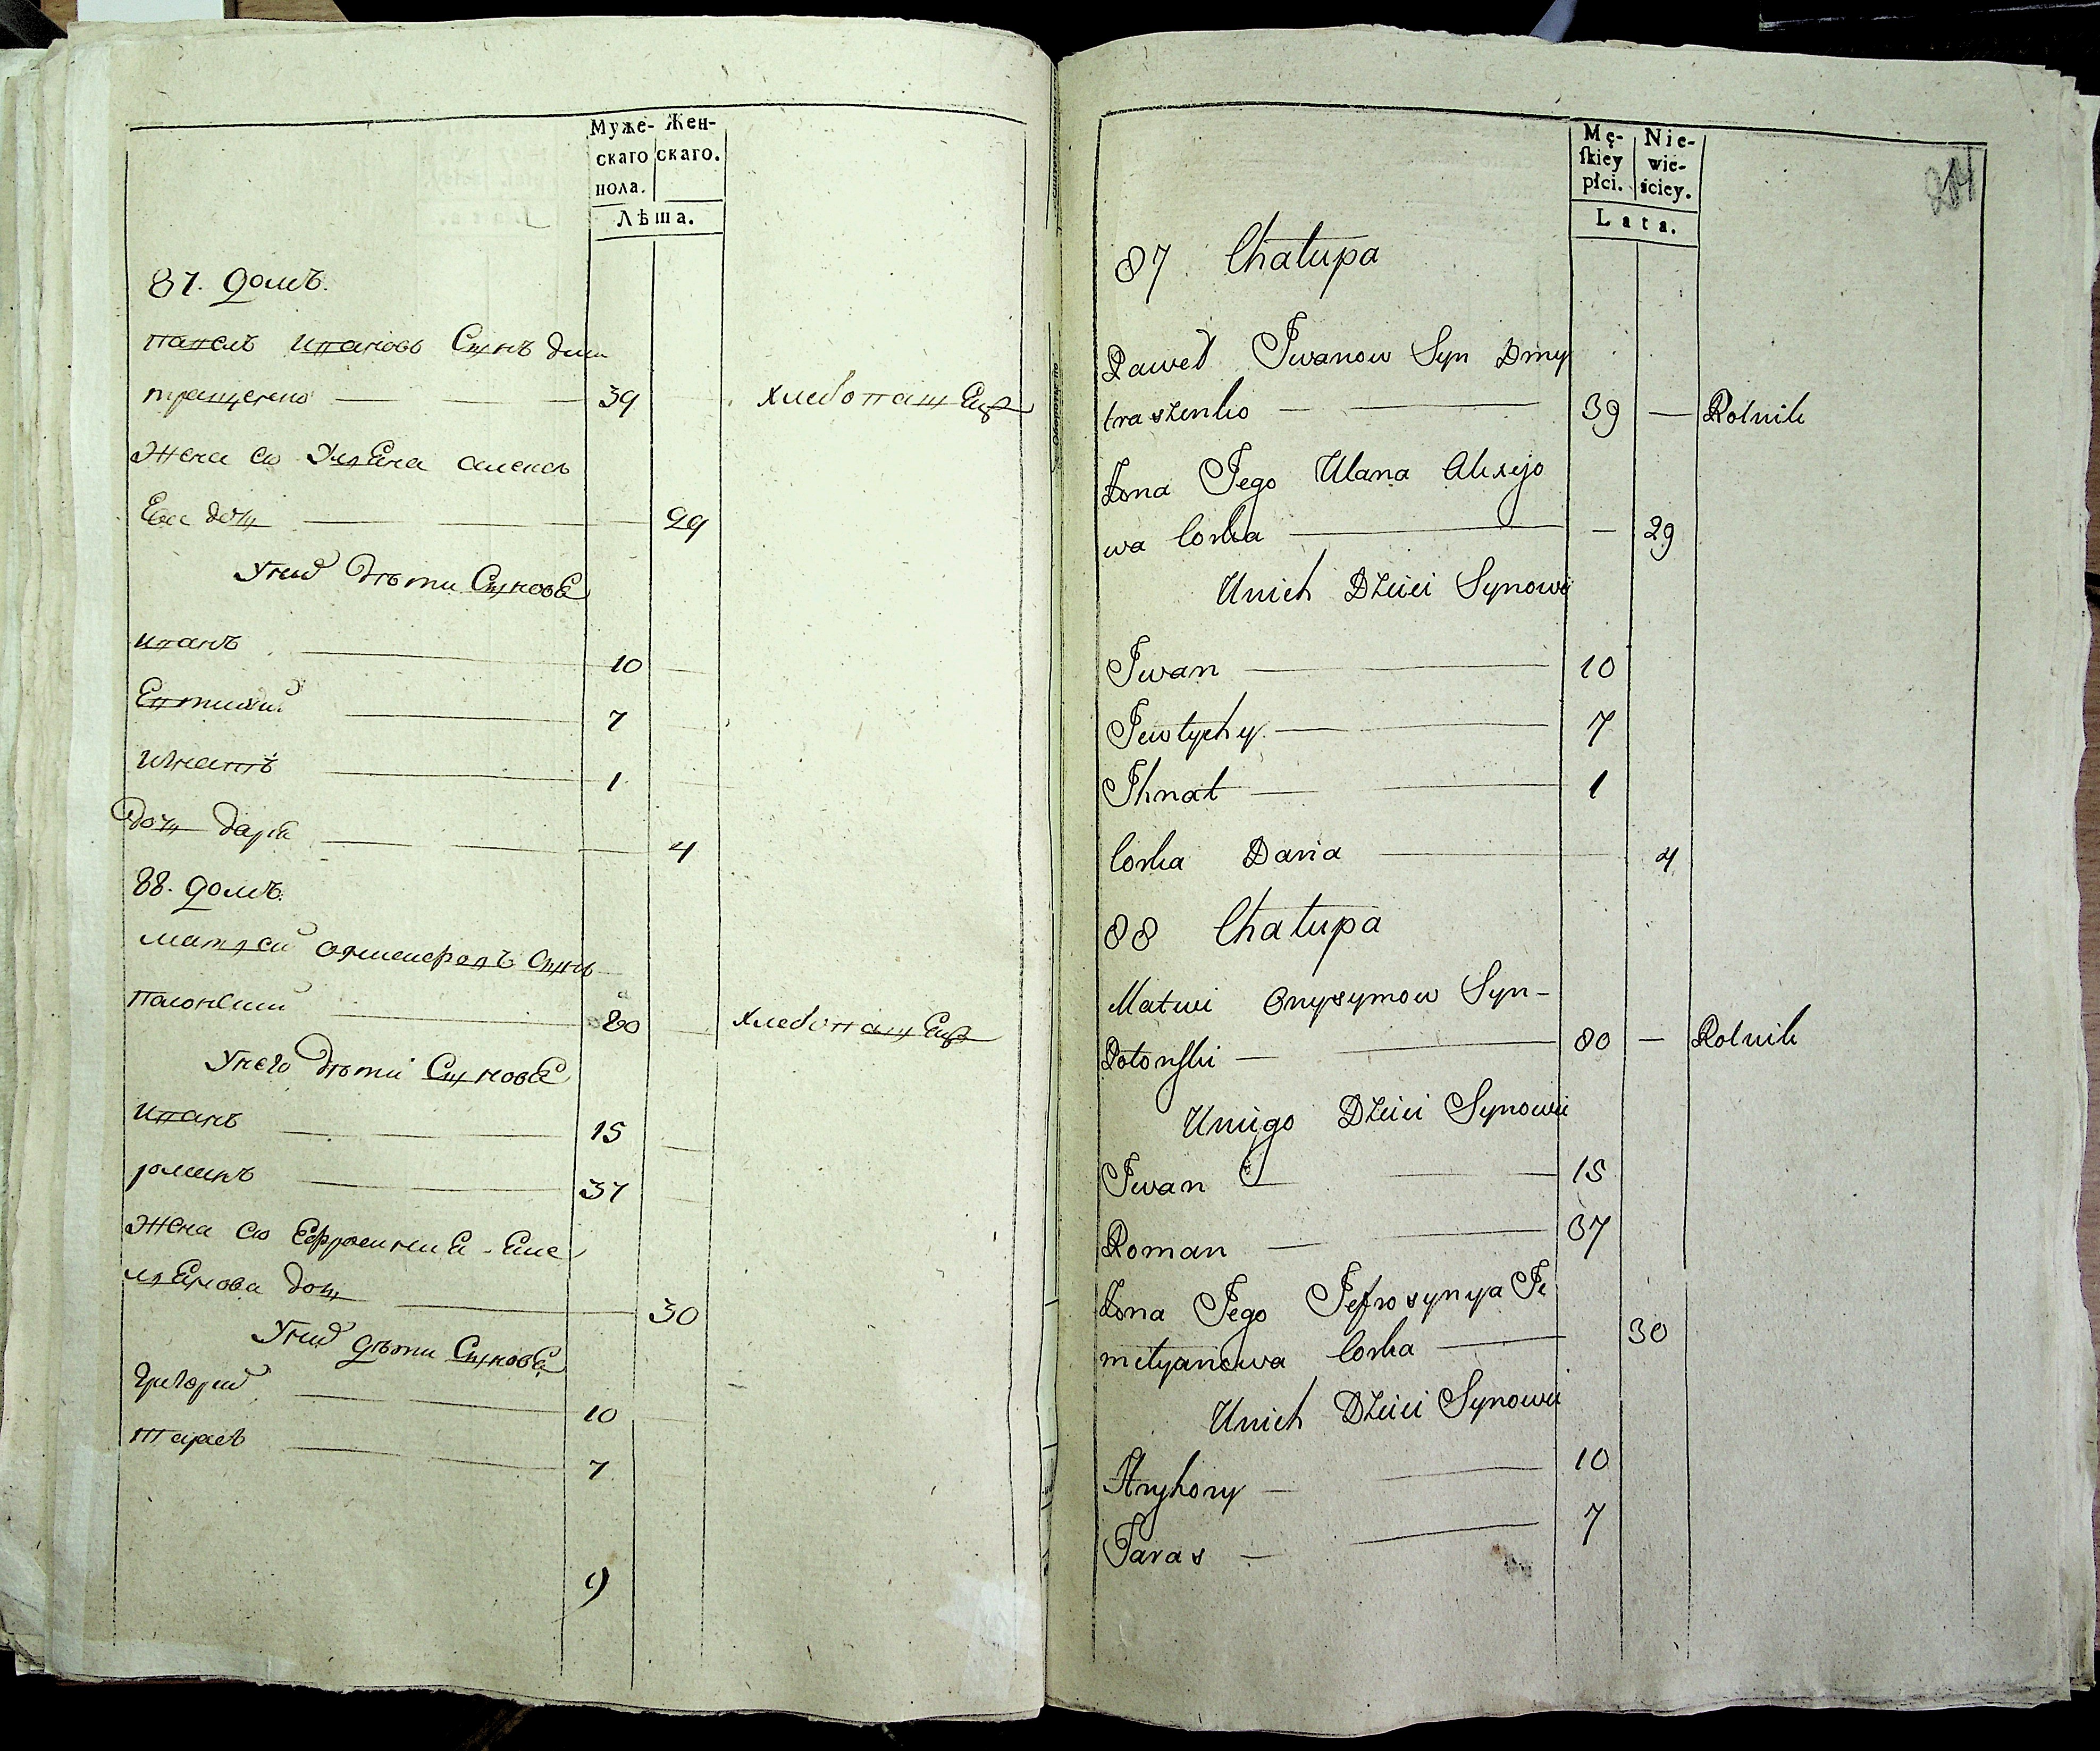 Муже- Жен-
скаго скаго.
пола.
Лѣта.
87. домъ.
павелъ ивановъ Сынъ дми
тращенко 39 хлебопашецъ
Жена его Улꙗна алексѣ
Ева дочь 29
У них дѣти Сыновꙗ
иванъ 10
Евтихий 7
игнатъ 1
дочь дарꙗ 4
88. домъ.
матвей онисифоровъ Сынъ
полонский 80 хлебопашецъ
У него дѣти Сыновꙗ
иванъ 15
романъ 37
Жена его Ефросиниꙗ Еме
лꙗнова дочь 30
У них дѣти Сыновꙗ
григорий 10
тарасъ 7
9
Mę- Nie-
skiey wie-
płci. ściey.
Lata.
87 Chałupa
Paweł Iwanow Syn Dmy
traszenko 39 — Rolnik
Żona Jego Ulana Alexejo
wa Corka — 29
Unich Dzieci Synowie
Iwan 10
Jewtychy 7
Ihnat 1
Corka Daria 4
88 Chałupa
Matwi Onysymow Syn
Połonski 80 — Rolnik
Uniego Dzieci Synowie
Iwan 15
Roman 37
Żona Jego Jefrosynya Je
melyanowa Corka 30
Unich Dzieci Synowie
Hryhory 10
Taras 7